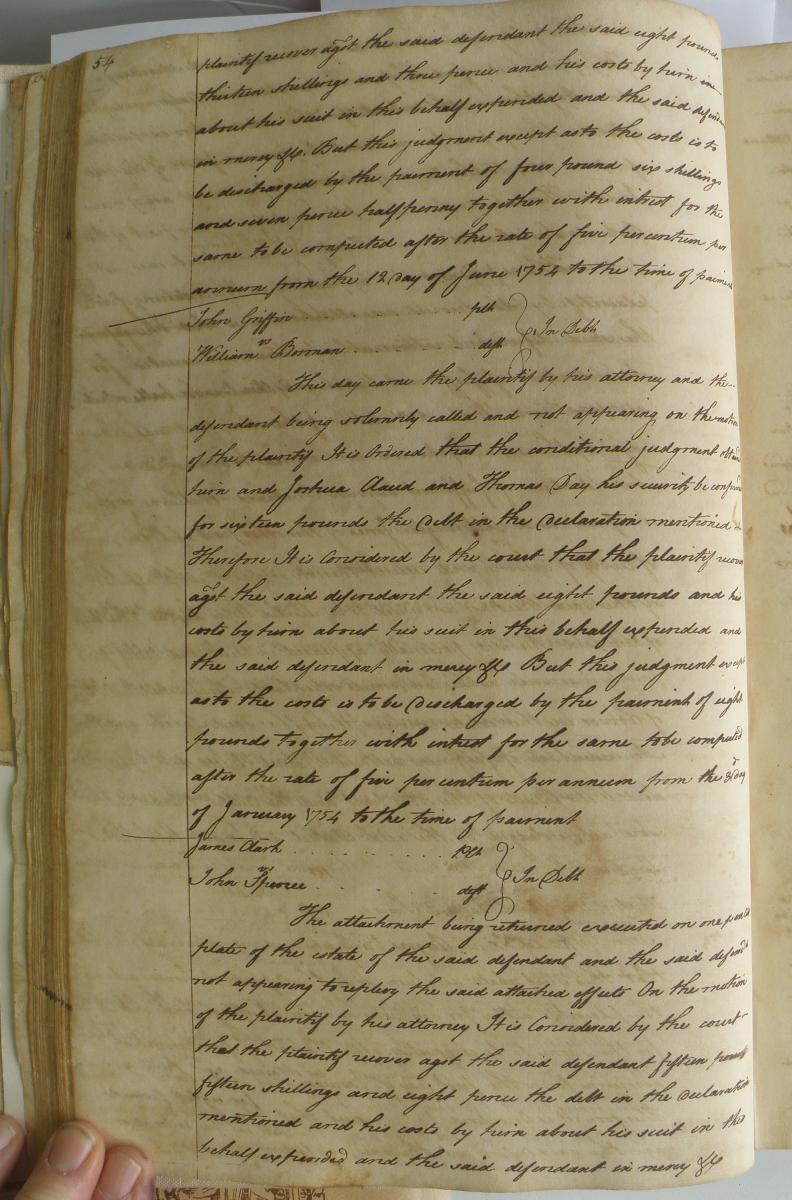 54
plaintif recover agst the said defendant the said eight pounds
thirteen shillings and three pence and his costs by him in
about his suit in this behalf expended and the said defend
in mercy &c. But this judgment except as to the costs is to
be discharged by the paiment of four pound six shillings
and seven pence halfpenny together with intrest for the
same to be computed after the rate of five per centum per
annum from the 12 day of June 1754 to the time of paiment
John Griffin . . . . . . . . . plt
vs } In Debt
William Borman . . . . . . . deft
This day came the plaintif by his attorney and the
defendant being solemnly called and not appearing on the motion
of the plaintif It is Ordered that the conditional judgment
him and Joshua Claud and Thomas Day his security be
for sixteen pounds the Debt in the Declaration mentioned
Therefore It is Considered by the court that the plaintif recover
agst the said defendant the said eight pounds and his
costs by him about his suit in this behalf expended and
the said defendant in mercy &c But this judgment except
as to the costs is to be Discharged by the paiment of eight
pounds together with intrest for the same to be computed
after the rate of five per centum per annum from the day
of January 1754 to the time of paiment
James Clark . . . . . . . plt
vs } In Debt
John Spence . . . . . . deft
The attachment being returned executed on one
plate of the estate of the said defendant and the said defendt
not appearing to replevy the said attached effects On the motion
of the plaintif by his attorney It is Considered by the court
that the plaintif recover agst the said defendant fifteen pounds
fifteen shillings and eight pence the debt in the declaration
mentioned and his costs by him about his suit in this
behalf expended and the said defendant in mercy &c